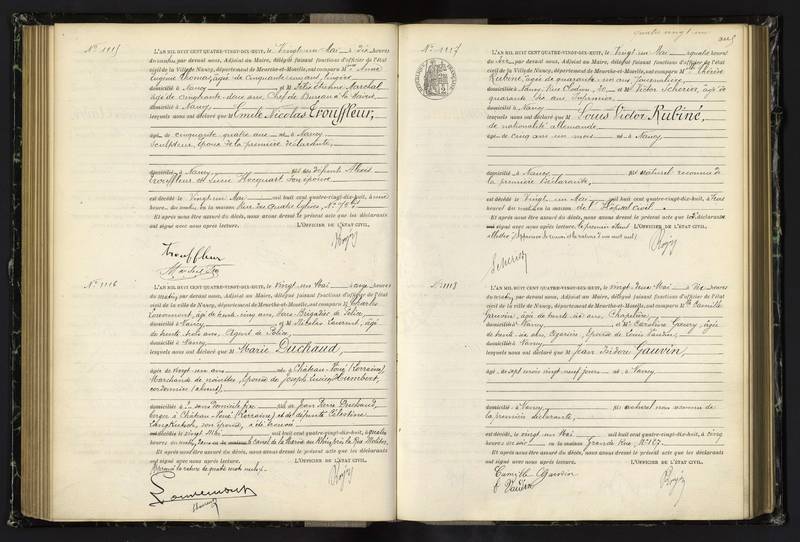 quatre vingt un
N° 1115
L'AN MIL HUIT CENT QUATRE-VINGT-DIX-HUIT, le vingt un Mai à Dix heures
du matin, par devant nous, Adjoint au Maire, délégué faisant fonctions d'officier de l'état
civil de la Ville de Nancy, département de Meurthe-et-Moselle, ont comparu M Anne
Eugénie Thomas, âgée de Cinquante un ans, lingère
domicilié à Nancy et M Félix Etienne Maréchal
âgé de cinquante deux ans, Chef de Bureau à la Mairie,
domicilié à Nancy
lesquels nous ont déclaré que M Emile Nicolas Trouffleur,
âgé de cinquante quatre ans né à Nancy
Sculpteur, époux de la première déclarante,
domicilié à Nancy, fils des défunts Alexis
Trouffleur et Lucie Hocquart son épouse
est décédé le Vingt un Mai mil huit cent quatre-vingt-dix-huit, à une
heure du matin, en la maison Rue des Quatre Eglises, N°
Et après nous être assuré du décès, nous avons dressé le présent acte que les déclarants
ont signé avec nous après lecture. L'OFFICIER DE L'ÉTAT CIVIL,
Trouffleur
N° 1116
L'AN MIL HUIT CENT QUATRE-VINGT-DIX-HUIT, le vingt un Mai à onze heures
du matin, par devant nous, Adjoint au Maire, délégué faisant fonctions d'officier de l'état
civil de la ville de Nancy, département de Meurthe-et-Moselle, ont comparu M Charles
Louvemont, âgé de trente cinq ans, Sous-Brigadier de Police,
domicilié à Nancy et M Nicolas Causront, âgé
de trente trois ans, Agent de Police,
domicilié à Nancy
lesquels nous ont déclaré que M Marie Duchaud,
âgée de vingt un ans née à Château-Voué (Lorraine)
Marchande de navettes, Épouse de Joseph Lucien Humbert,
cordonnier (absent),
domiciliée à sans domicile fixe fille de Jean Pierre Duchaud,
berger à Château-Voué (Lorraine) et de défunte Célestine
son épouse, a été trouvée
décédée le vingt Mai mil huit cent quatre-vingt-dix-huit, à quatre
heures du matin, dans le canal de la Marne au Rhin, vers la Rue
Et après nous être assuré du décès, nous avons dressé le présent acte que les déclarants
ont signé avec nous après lecture. L'OFFICIER DE L'ÉTAT CIVIL,
Louvemont
N° 1117
L'AN MIL HUIT CENT QUATRE-VINGT-DIX-HUIT, le Vingt un Mai à quatre heures
du soir, par devant nous, Adjoint au Maire, délégué faisant fonctions d'officier de l'état
civil de la Ville de Nancy, département de Meurthe-et-Moselle, ont comparu M Thérèse
Rubiné, âgée de quarante un ans, Journalière,
domiciliée à Nancy, Rue Clodion, et M Victor Scherier, âgé de
quarante six ans Infirmier,
domicilié à Nancy
lesquels nous ont déclaré que M Louis Victor Rubiné,
de nationalité allemande
âgé de cinq ans un mois né à Nancy
domicilié à Nancy fils naturel reconnu de
la première Déclarante,
est décédé le vingt un Mai mil huit cent quatre-vingt-dix-huit, à
heures du matin en la maison de l'Hôpital Civil.
Et après nous être assuré du décès, nous avons dressé le présent acte que le 2e déclarant
ont signé avec nous après lecture. L'OFFICIER DE L'ÉTAT CIVIL,
N° 1118
L'AN MIL HUIT CENT QUATRE-VINGT-DIX-HUIT, le vingt deux Mai à Dix heures
du matin, par devant nous, Adjoint au Maire, délégué faisant fonctions d'officier de l'état
civil de la ville de Nancy, département de Meurthe-et-Moselle, ont comparu M Camille
Gauvin, âgée de trente six ans, Chapelière,
domiciliée à Nancy et M Caroline âgée
de trente six ans, épouse de Louis
domiciliée à Nancy
lesquels nous ont déclaré que M Jean Isidore Gauvin,
âgé de sept mois vingt neuf jours né à Nancy
domicilié à Nancy fils naturel non reconnu de
la première déclarante,
est décédé le vingt un Mai mil huit cent quatre-vingt-dix-huit, à cinq
heures du soir en la maison Grande Rue N° 127.
Et après nous être assuré du décès, nous avons dressé le présent acte que les déclarants
ont signé avec nous après lecture. L'OFFICIER DE L'ÉTAT CIVIL,
Camille Gauvin